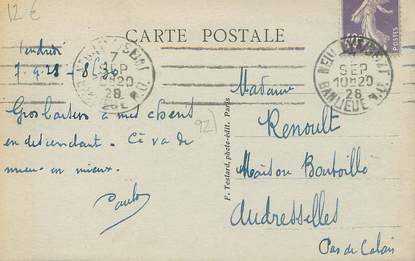 12 €
CARTE POSTALE
Vendredi
7.9.28 - 8h30
7
SEP
10H20
28
SEP
10H20
28
BANLIEUE
Gros baisers à mes chéris
en descendant. Ça va de
mieux en mieux.
Paulo
92)
F. Testard, photo-édit. Paris
Madame
Renoult
Maison Boutoille
Audresselles
Pas de Calais